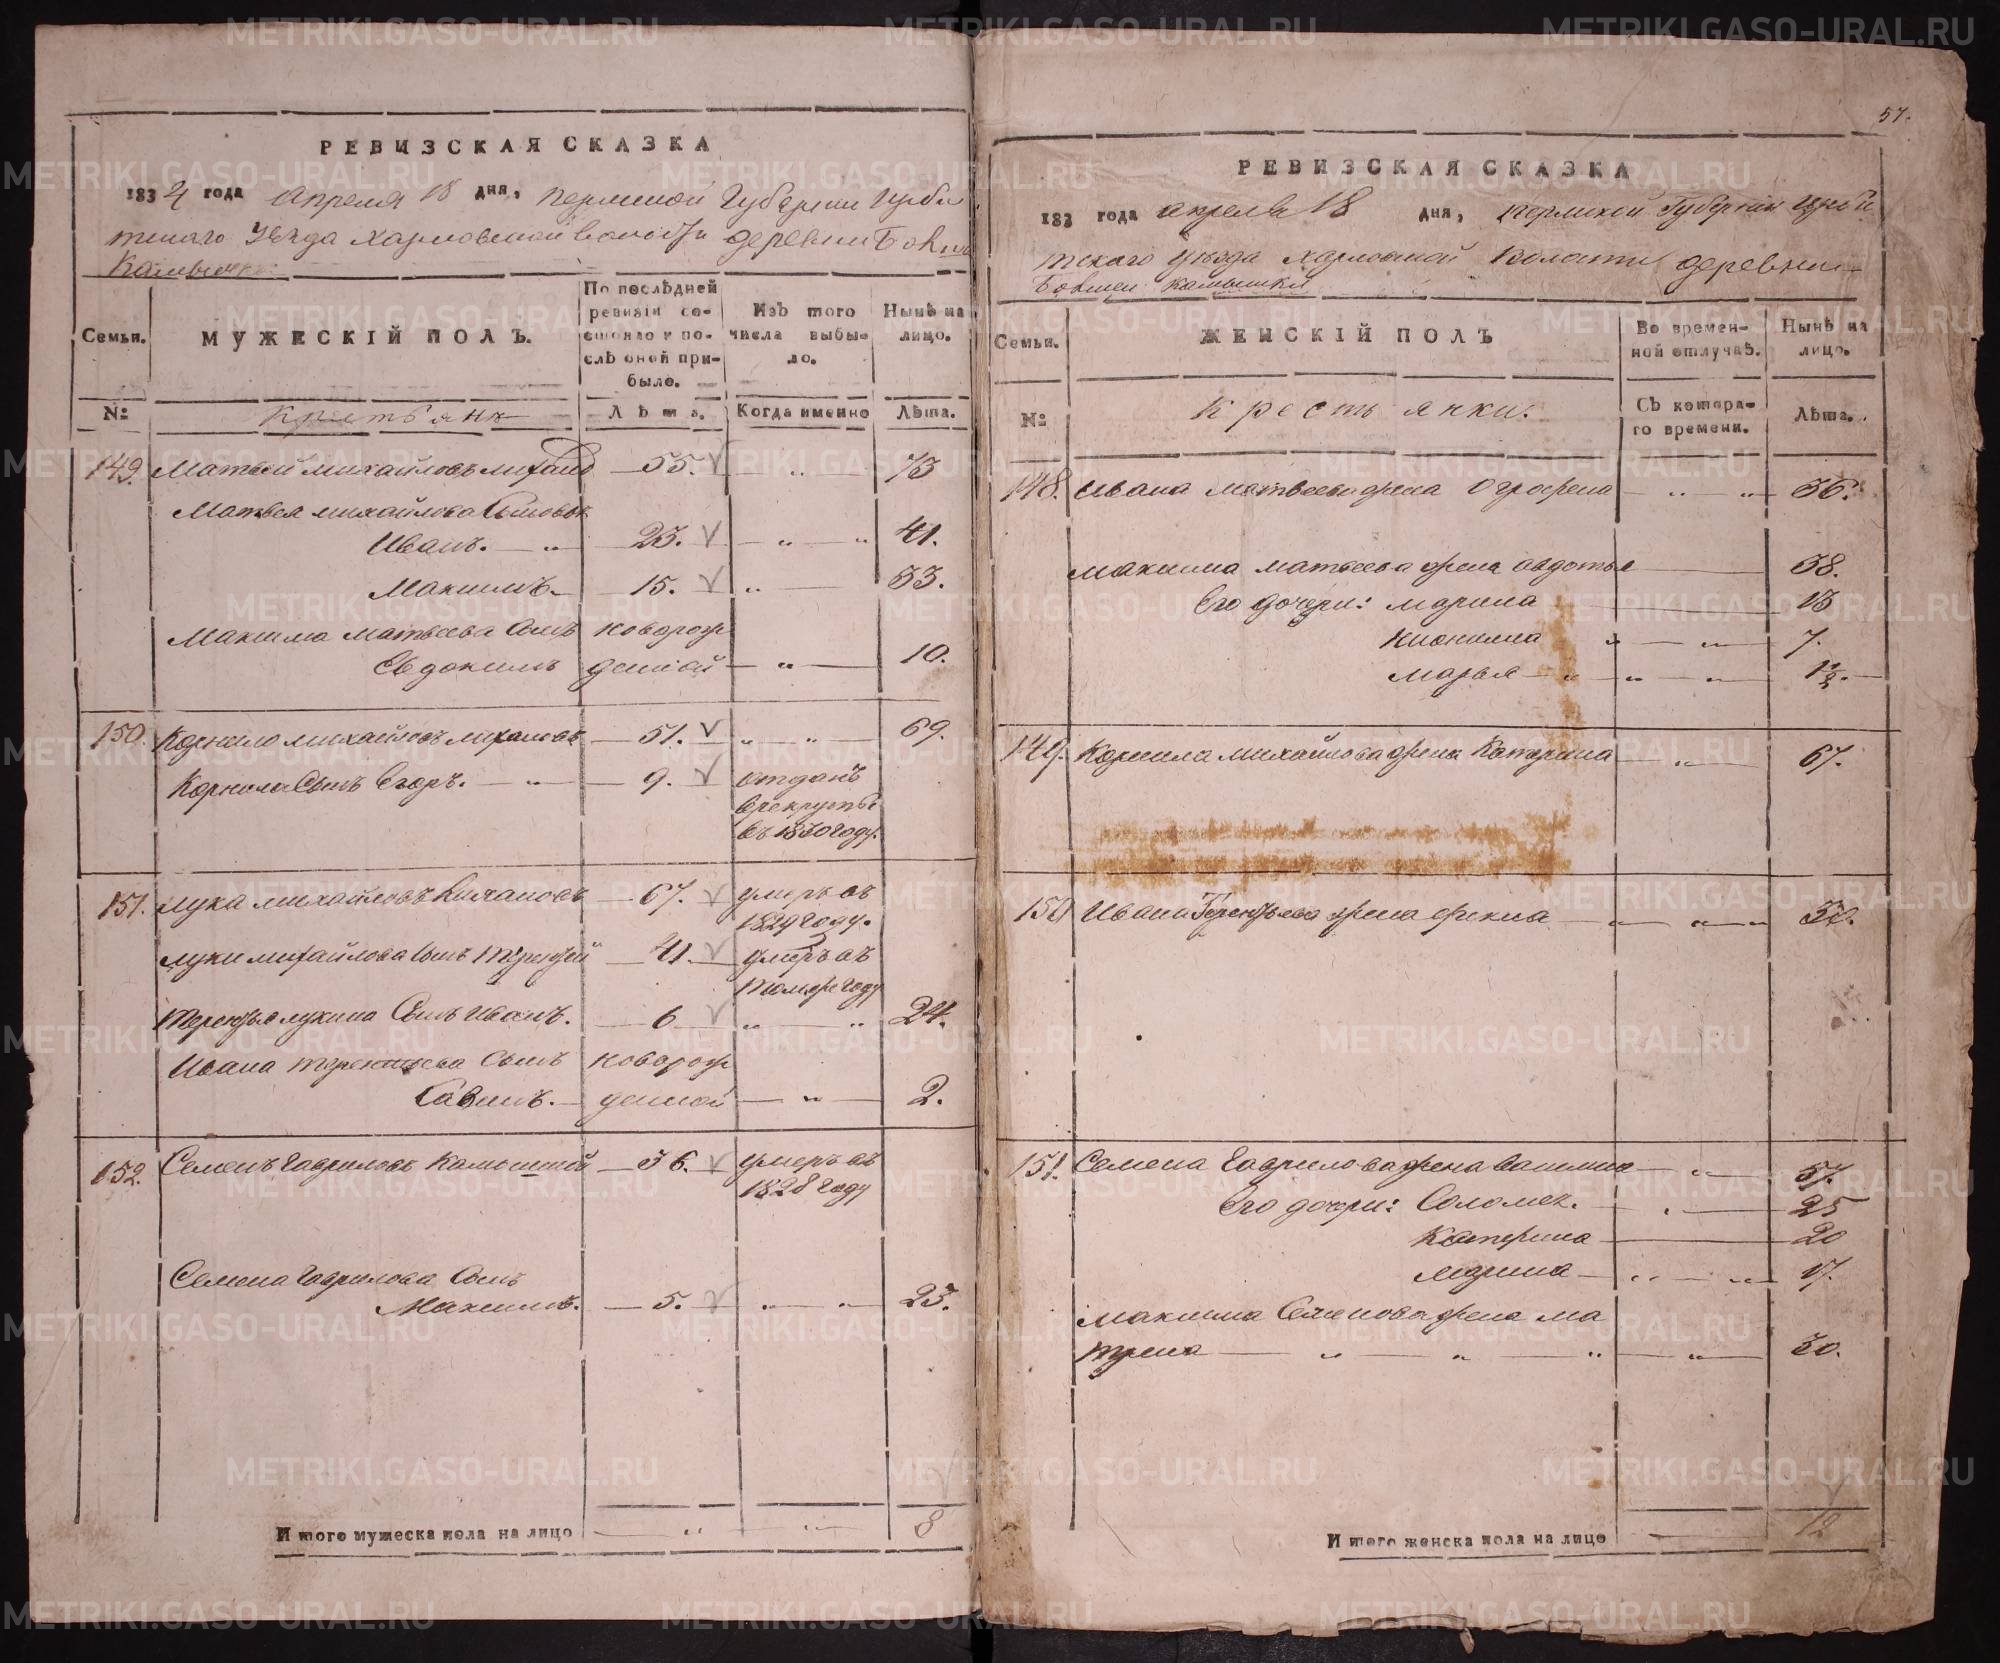 РЕВИЗСКАЯ СКАЗКА
1834 года Апреля 18 дня, Пермской Губернии Ирби
тскаго Уезда Харловской волости деревни Бовши
Камышки
Семьи.
МУЖЕСКІЙ ПОЛЪ.
По послѣдней ревизіи состояло и послѣ оной прибыло.
Изъ того числа выбыло.
Нынѣ на лицо.
№
Крестьянъ
Лѣта.
Когда именно
Лѣта.
149. Матвей Михайловъ Лиханов 55. 73
Матвея Михайлова Сыновья
Иванъ. 23. 41.
Максимъ. 15. 33.
Максима Матвеева Сынъ новорож
Евдокимъ денной 10.
150. Корнило Михайловъ Лихановъ 51. 69.
Корнила Сынъ Егоръ. 9. отданъ
в рекруты
въ 1830 году.
151. Лука Михайловъ Лихановъ 67. умеръ въ
1829 году.
Луки Михайлова Сынъ Терентей 41. умеръ въ
томже году
Терентья Лукина Сынъ Иванъ. 6 24.
Ивана Терентьева Сынъ новорож
Савинъ. денной 2.
152. Семенъ Гавриловъ 36. умеръ въ
1828 году
Семена Гаврилова Сынъ
Максимъ. 5. 23.
Итого мужеска пола на лицо 8
57.
РЕВИЗСКАЯ СКАЗКА
183 года апреля 18 дня, Пермской Губернии Ирби
тскаго уезда Харловской Волости деревни
Бовшеи камышки
Семьи.
ЖЕНСКІЙ ПОЛЪ
Во временной отлучкѣ.
Нынѣ на лицо.
№
Крестьянки.
Съ котораго времени.
Лѣта.
148. Ивана Матвеева жена Огрофена 36.
Максима Матвеева жена Авдотья 38.
Его дочери: Марина 13
Кионилла 7.
Марья 1½.
149. Корнила Михайлова жена Катерина 67.
150 Ивана Терентьева жена Фекла 30.
151. Семена Гаврилова жена Василиса 57.
Его дочери: Соломея. 25
Катерина 20
Марина 17.
Максима Семенова жена Ма
трена 30.
Итого женска пола на лицо 12
METRIKI.GASO-URAL.RU